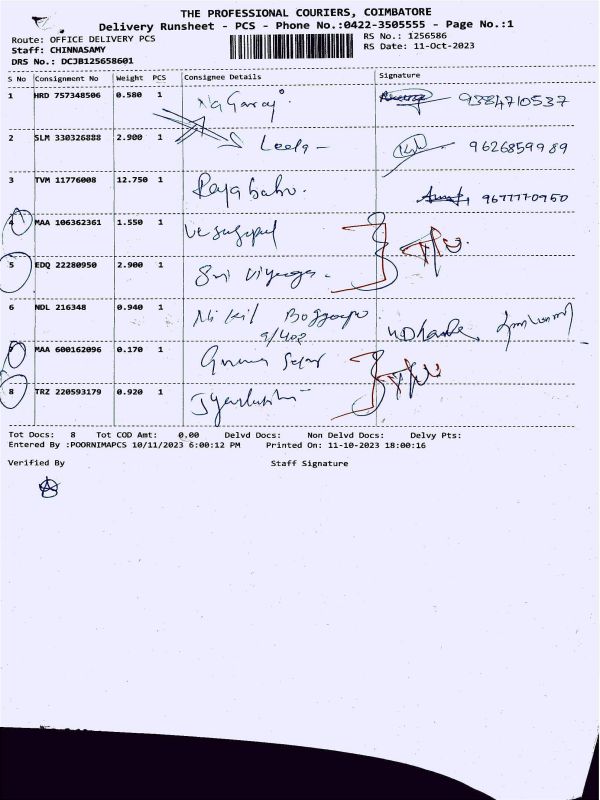 THE PROFESSIONAL COURIERS, COIMBATORE
Delivery Runsheet - PCS - Phone No.:0422-3505555 - Page No.:1
Route: OFFICE DELIVERY PCS RS No.: 1256586
Staff: CHINNASAMY RS Date: 11-Oct-2023
DRS No.: DCJB125658601
S No Consignment No Weight PCS Consignee Details Signature
1 HRD 757348506 0.580 1 Nagaraj 9384710537
2 SLM 330326888 2.900 1 Leela - 9626859989
3 TVM 11776008 12.750 1 Rajababu. 9677770950
4 MAA 106362361 1.550 1
5 EDQ 22280950 2.900 1 Sri
6 NDL 216348 0.940 1 Nikil
9/402
7 MAA 600162096 0.170 1
8 TRZ 220593179 0.920 1
Tot Docs: 8 Tot COD Amt: 0.00 Delvd Docs: Non Delvd Docs: Delvy Pts:
Entered By :POORNIMAPCS 10/11/2023 6:00:12 PM Printed On: 11-10-2023 18:00:16
Verified By Staff Signature